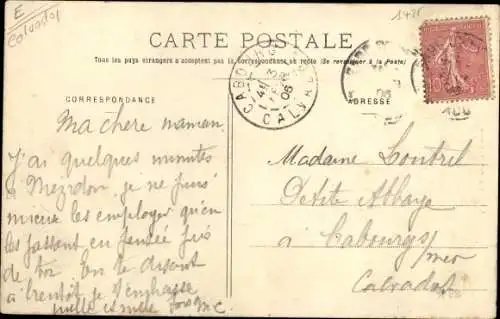 E
Calvados
1425
CARTE POSTALE
Tous les pays étrangers n'acceptent pas la correspondance au recto (Se renseigner à la Poste)
CORRESPONDANCE
ADRESSE
CABOURG
CALVADOS
10
Ma chere maman
J'ai quelques minutes
à Mezidon je ne puis
mieux les employer qu'en
les passant en pensée près
de toi. En te disant
à bientôt je t'embrasse
mille et mille fois
Madame Loutrel
Petite Abbaye
à Cabourg s/
mer
Calvados